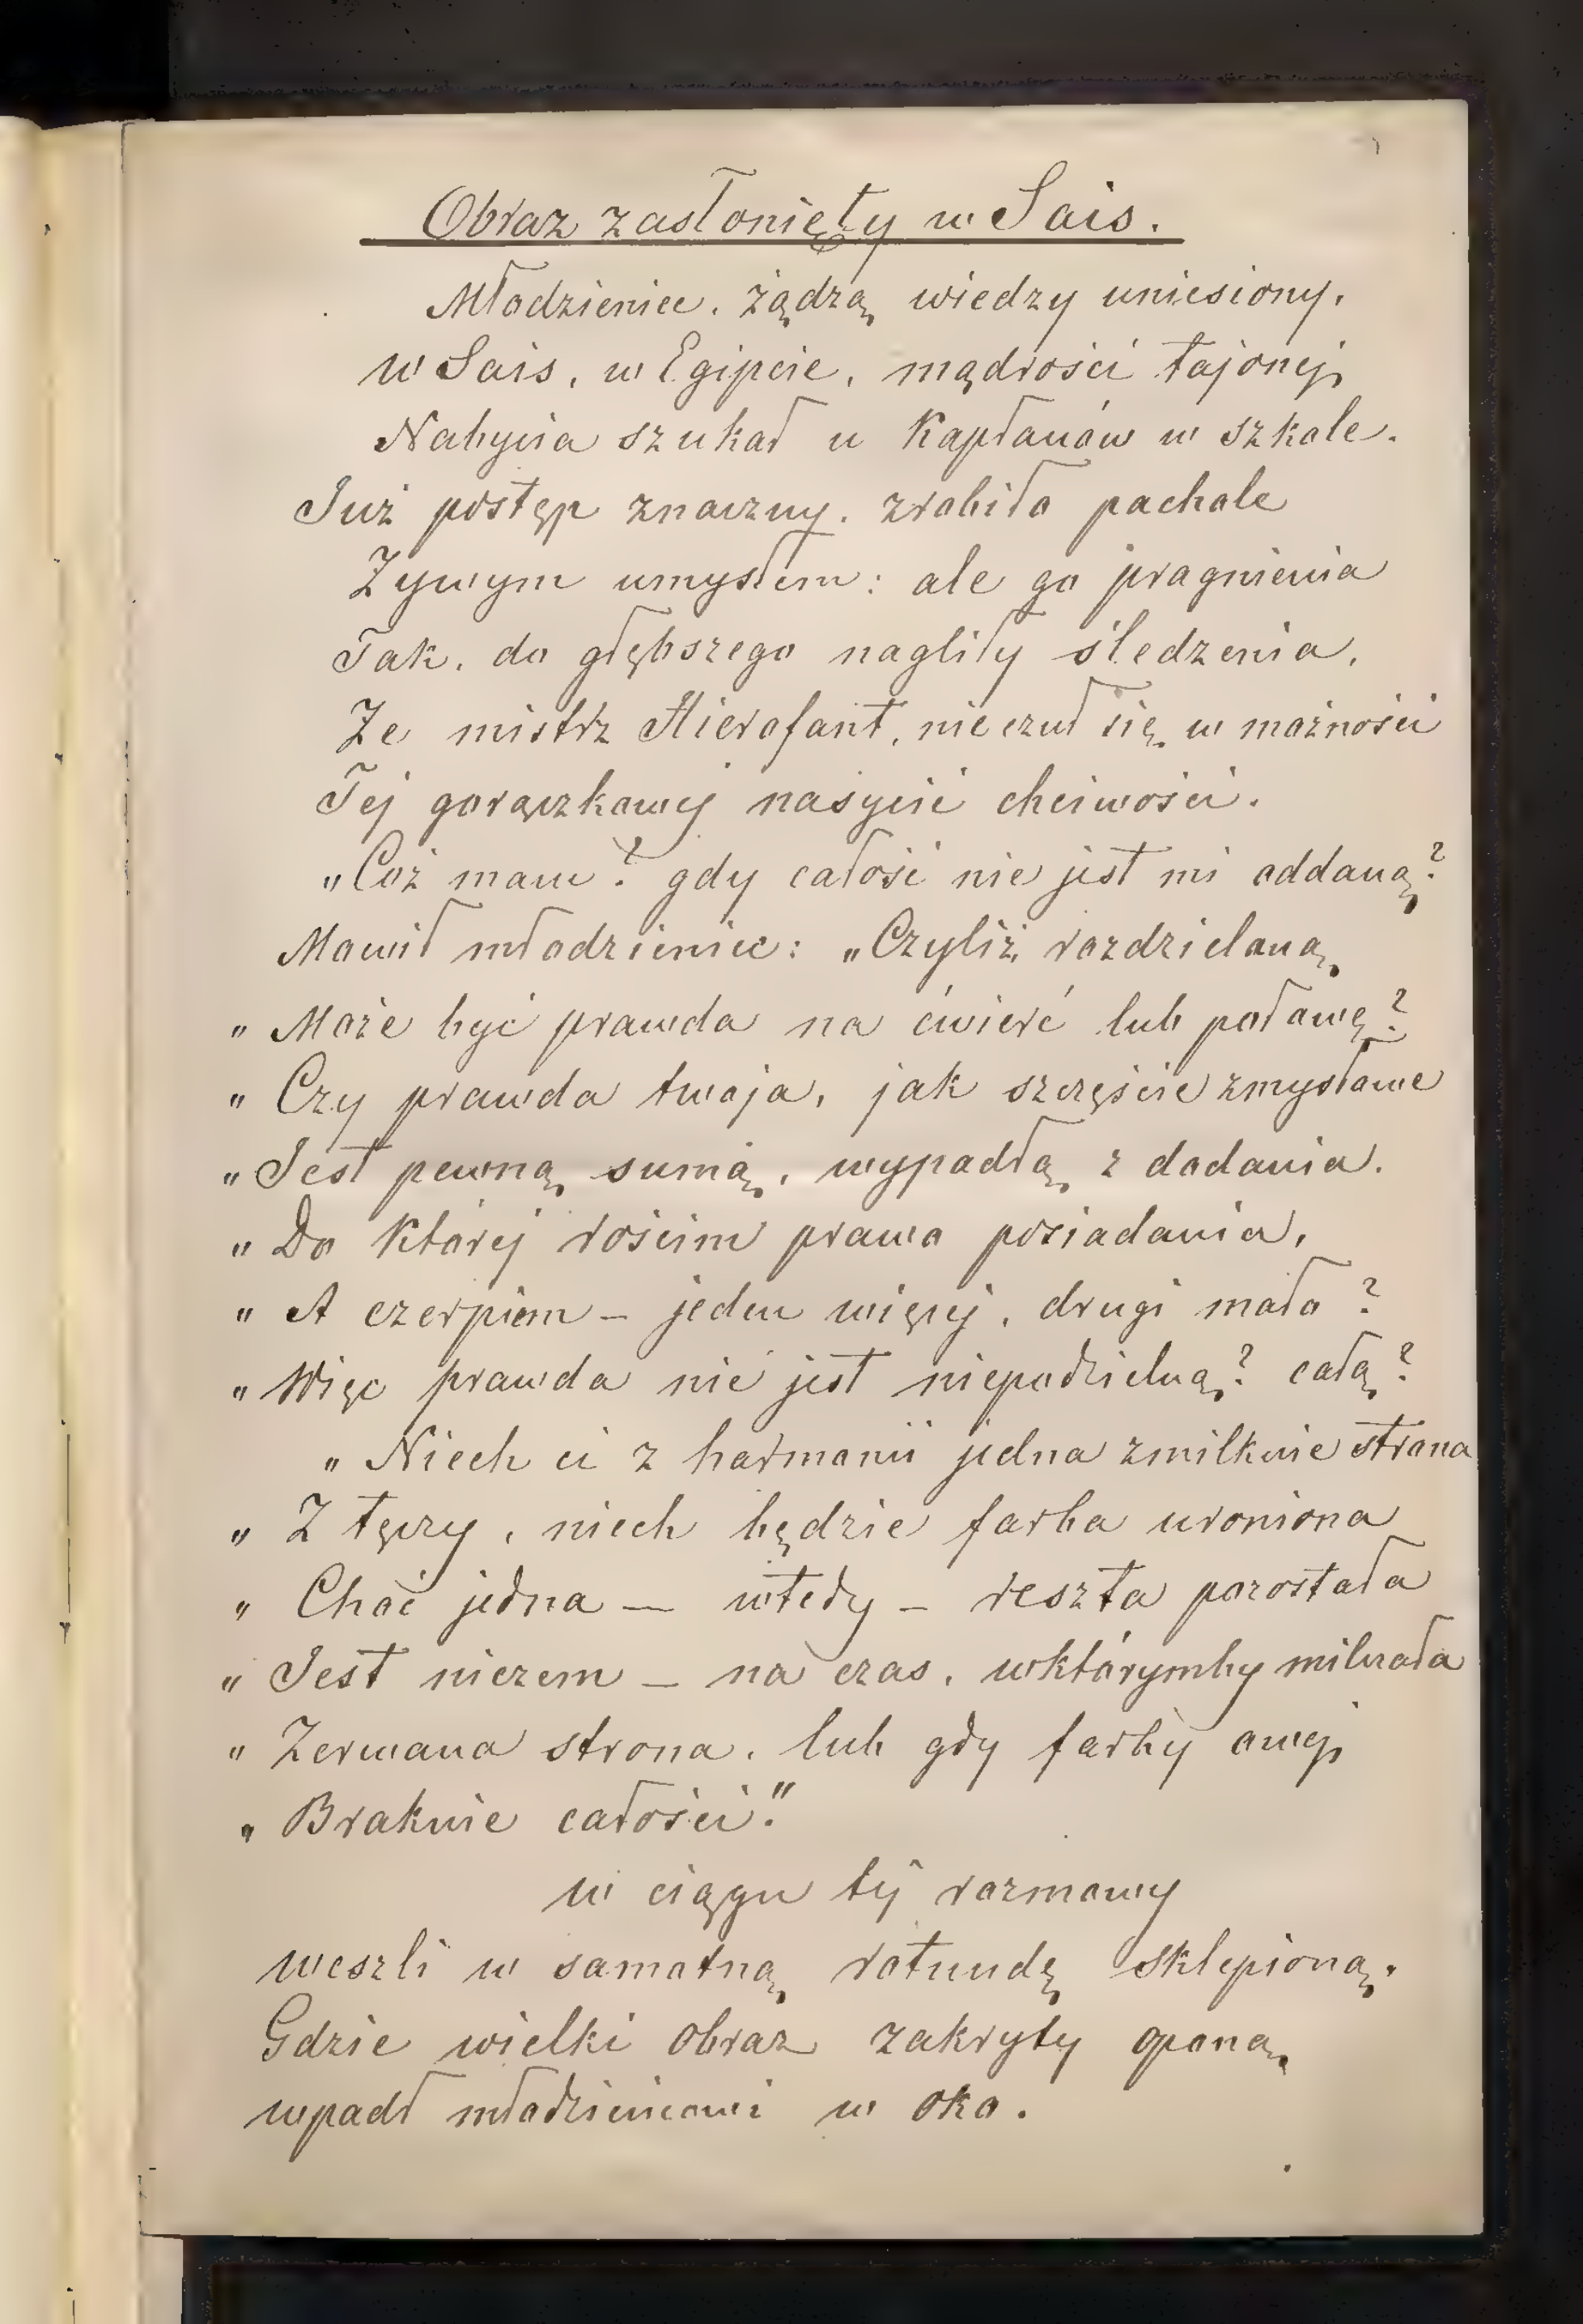 Obraz zasłonięty w Sais.
Młodzieniec, żądzą wiedzy uniesiony,
w Sais, w Egipcie, mądrości tajonej
Nabycia szukał u Kapłanów w szkole.
Już postęp znaczny, zrobiło pachole
Żywym umysłem: ale go pragnienia
Tak, do głębszego nagliły śledzenia,
Że mistrz Hierofant, nie czuł się w możności
Tej gorączkowej nasycić chciwości.
„Coż mam? gdy całość nie jest mi oddaną?
Mowił młodzieniec: „Czyliż rozdzielaną
„ Może być prawda na ćwierć lub połowę?
„ Czy prawda twoja, jak szczęście zmysłowe
„ Jest pewną sumą, wypadłą z dodania.
„ Do której rościm prawo posiadania,
„ A czerpiem – jeden więcej, drugi mało?
„ Więc prawda nie jest niepodzielną? całą?
„ Niech ci z harmonii jedna zmilknie strona
„ Z tęczy, niech będzie farba uroniona
„ Choć jedna — wtedy – reszta pozostała
„ Jest niczem – na czas, wktórymby milczała
„ Zerwana strona, lub gdy farby owej
„ Braknie całości."
w ciągu tej rozmowy
weszli w samotną rotundę sklepioną,
Gdzie wielki obraz zakryty oponą
wpadł młodzieńcowi w oko.